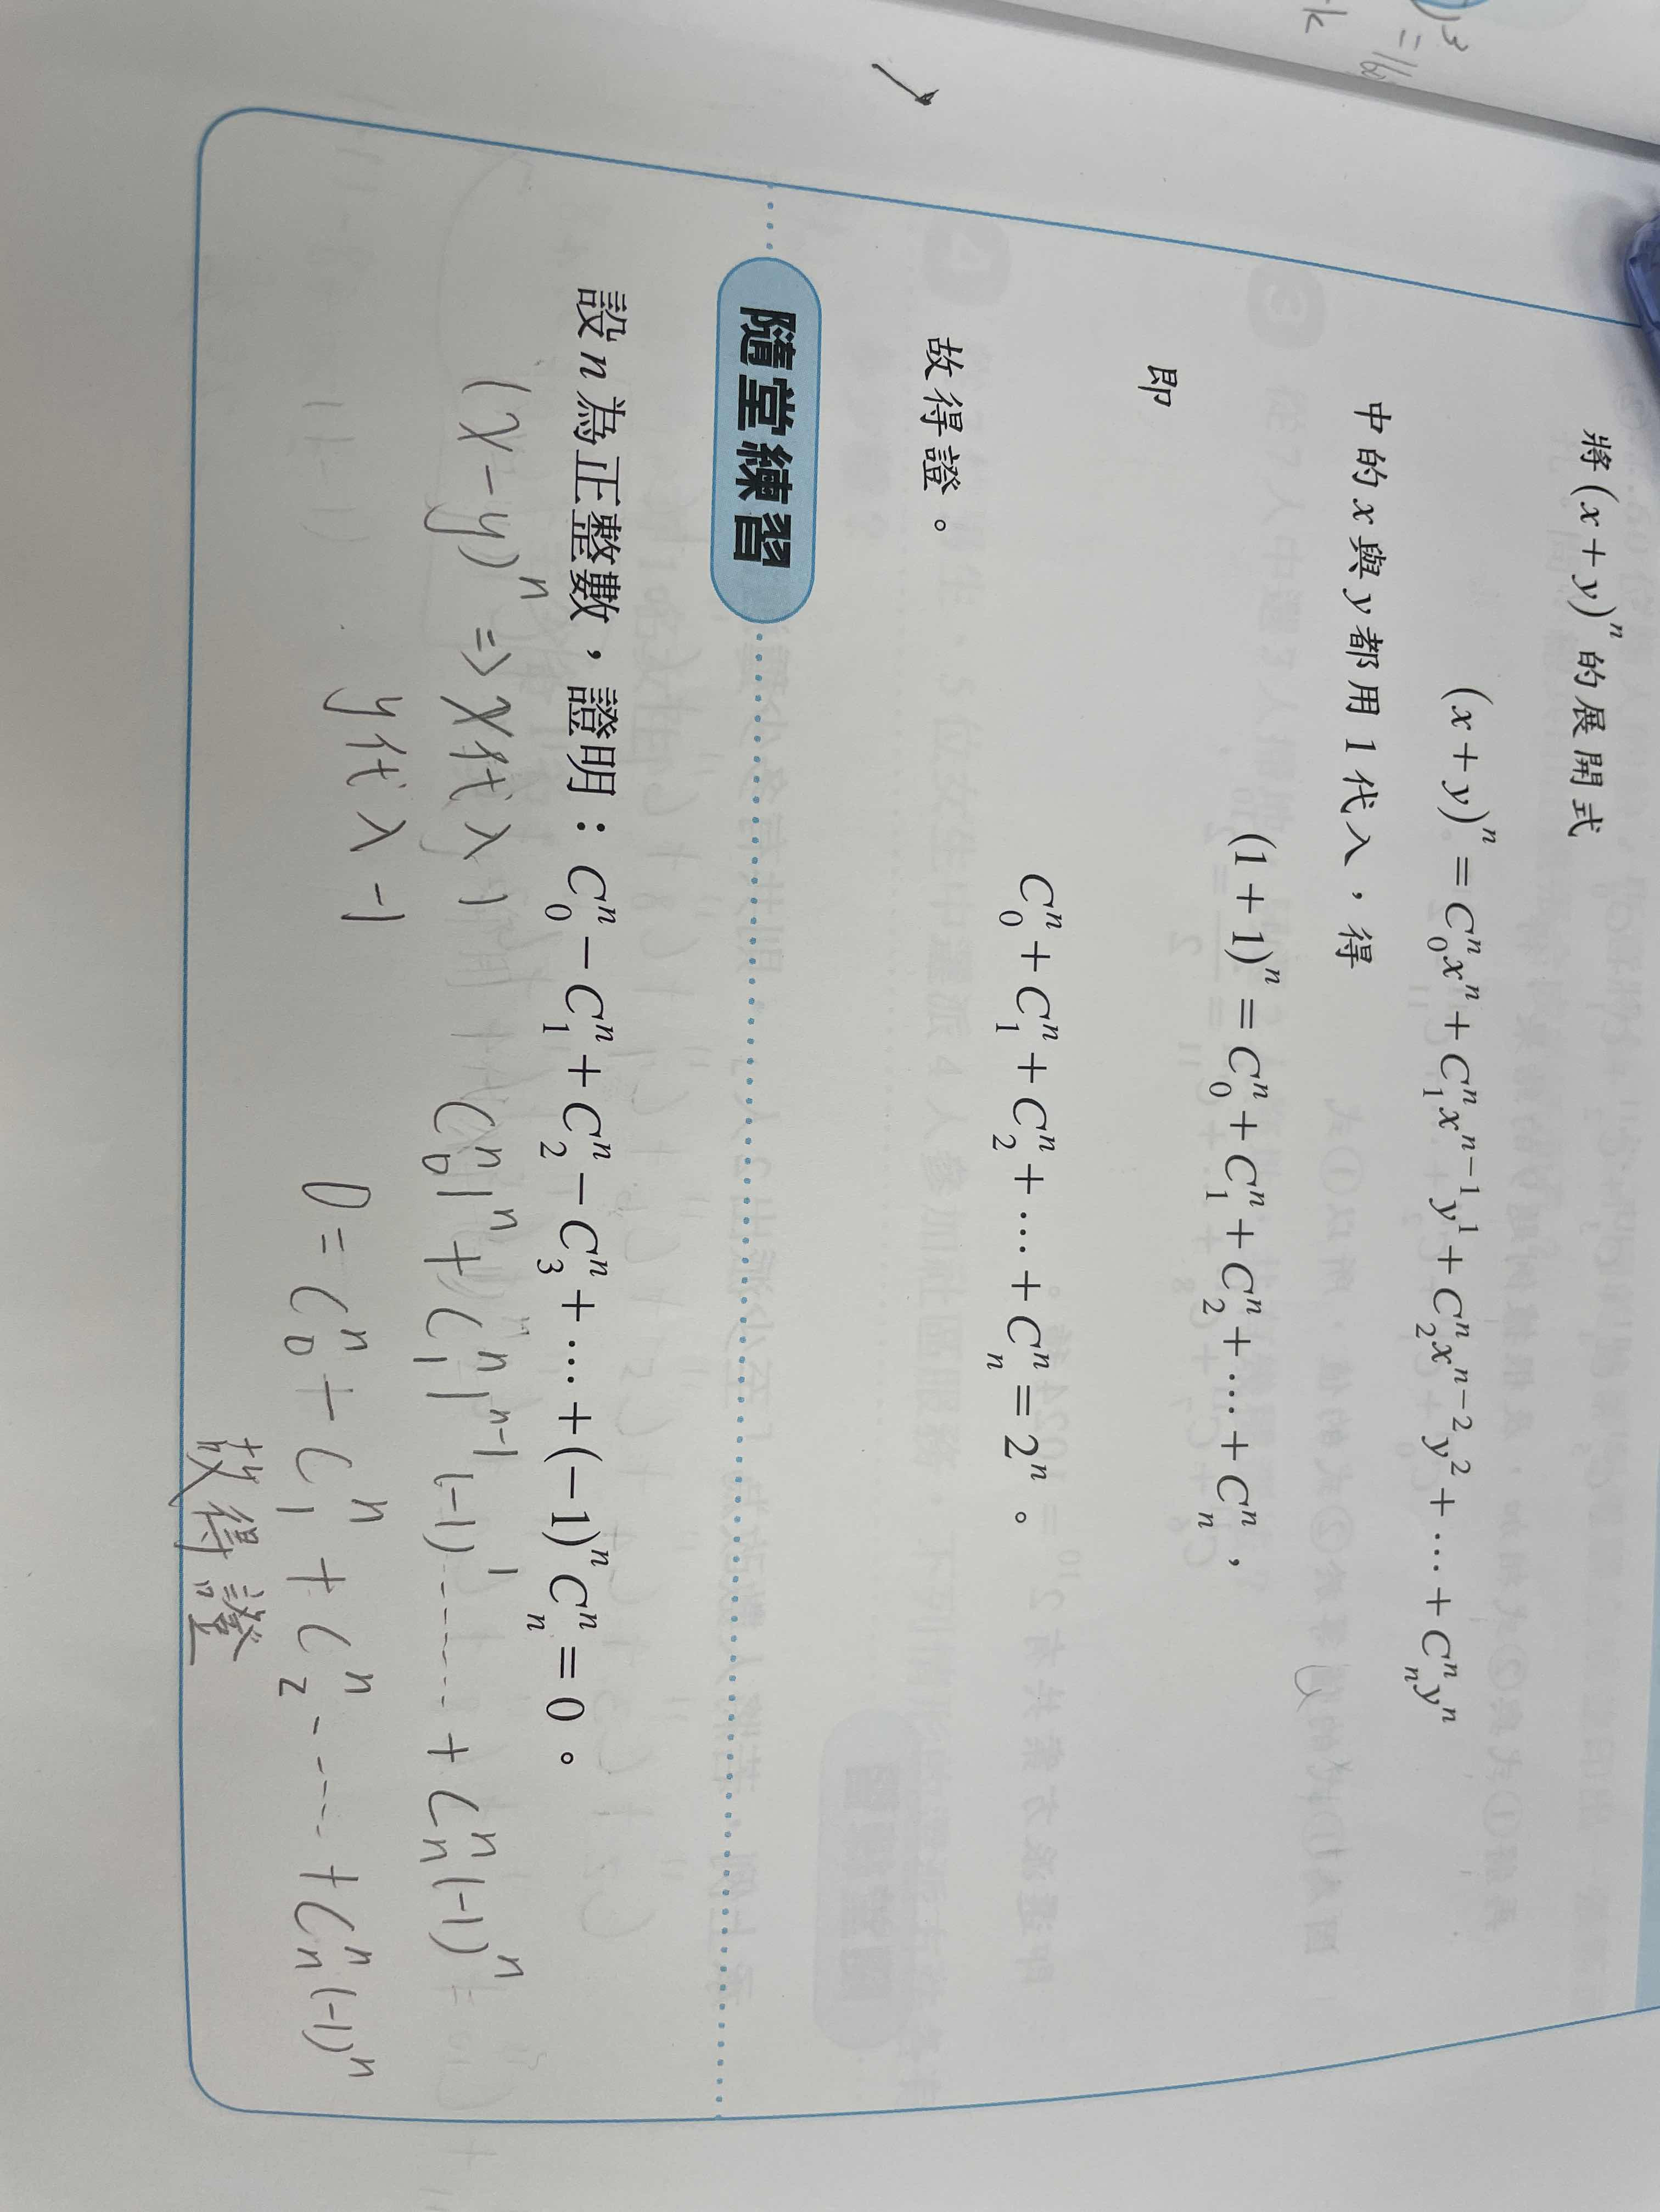 )³ = 1/6
-k
將(x+y)ⁿ的展開式
(x+y)ⁿ=C₀ⁿxⁿ+C₁ⁿxⁿ⁻¹y¹+C₂ⁿxⁿ⁻²y²+…+Cₙⁿyⁿ
中的x與y都用1代入，得
(1+1)ⁿ=C₀ⁿ+C₁ⁿ+C₂ⁿ+…+Cₙⁿ，
即
C₀ⁿ+C₁ⁿ+C₂ⁿ+…+Cₙⁿ=2ⁿ。
故得證。
隨堂練習
設n為正整數，證明：C₀ⁿ−C₁ⁿ+C₂ⁿ−C₃ⁿ+…+(−1)ⁿCₙⁿ=0。
(x-y)ⁿ ⇒ x代入1 C₀ⁿ1ⁿ+C₁ⁿ1ⁿ⁻¹(-1)¹------+Cₙⁿ(-1)ⁿ
y代入-1
0=C₀ⁿ+C₁ⁿ+C₂ⁿ-----+Cₙⁿ(-1)ⁿ
故得證